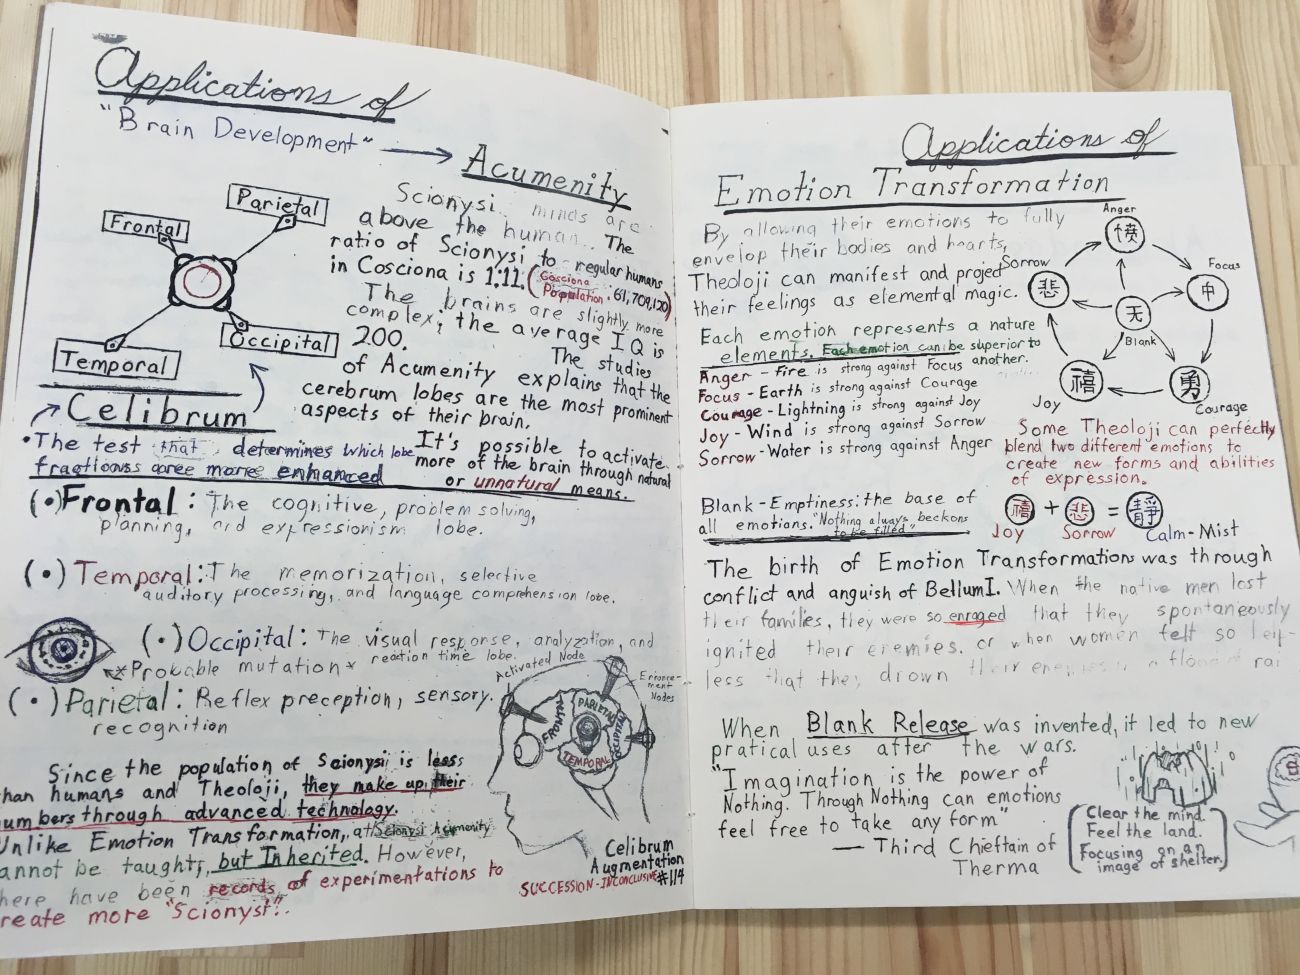 Applications of
"Brain Development" → Acumenity
Parietal
Frontal
Occipital
Temporal
Scionysi minds are
above the human. The
ratio of Scionysi to regular humans
in Cosciona is 1:11. (Cosciona
Population · 61,709,120)
The brains are slightly more
complex; the average IQ is
200. The studies
of Acumenity explains that the
cerebrum lobes are the most prominent
aspects of their brain.
Celibrum
• The test that determines which lobe
fractions are more enhanced
It's possible to activate
more of the brain through natural
or unnatural means.
(•) Frontal: The cognitive, problem solving,
planning, and expressionism lobe.
(•) Temporal: The memorization, selective
auditory processing, and language comprehension lobe.
(•) Occipital: The visual response, analyzation, and
reaction time lobe.
*Probable mutation*
(•) Parietal: Reflex preception, sensory.
recognition
Activated Node
Enhancement
Nodes
FRONTAL
PARIETAL
OCCIPITAL
TEMPORAL
Since the population of Scionysi is less
han humans and Theoloji, they make up their
umbers through advanced technology.
Unlike Emotion Transformation, Scionysi Acumenity
annot be taught, but Inherited. However,
here have been records of experimentations to
reate more "Scionysi".
Celibrum
Augmentation
SUCCESSION-INCONCLUSIVE #114
Applications of
Emotion Transformation
By allowing their emotions to fully
envelop their bodies and hearts,
Theoloji can manifest and project
their feelings as elemental magic.
Anger
憤
Sorrow
悲
Focus
中
无
Blank
Joy
禧
勇
Courage
Each emotion represents a nature
elements. Each emotion can be superior to
another.
Anger - Fire is strong against Focus
Focus - Earth is strong against Courage
Courage - Lightning is strong against Joy
Joy - Wind is strong against Sorrow
Sorrow - Water is strong against Anger
Some Theoloji can perfectly
blend two different emotions to
create new forms and abilities
of expression.
禧 + 悲 = 靜
Joy Sorrow Calm-Mist
Blank - Emptiness: the base of
all emotions. "Nothing always beckons
to be filled"
The birth of Emotion Transformations was through
conflict and anguish of Bellum I. When the native men lost
their families, they were so enraged that they spontaneously
ignited their enemies. or when women felt so help-
less that they drown their enemies in a flood of rai
When Blank Release was invented, it led to new
pratical uses after the wars.
"Imagination is the power of
Nothing. Through Nothing can emotions
feel free to take any form"
— Third Chieftain of
Therma
Clear the mind.
Feel the land.
Focusing on an
image of shelter.